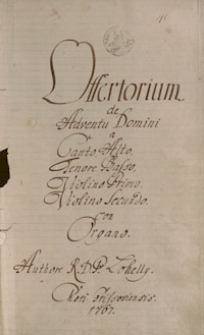 Offertorium
de
Adventu Domini
a
Canto, Alto,
Tenore Basso,
Violino Primo,
Violino Secundo.
con
Organo.
Authore R: D: P: Zokelly.
Chori
1767.